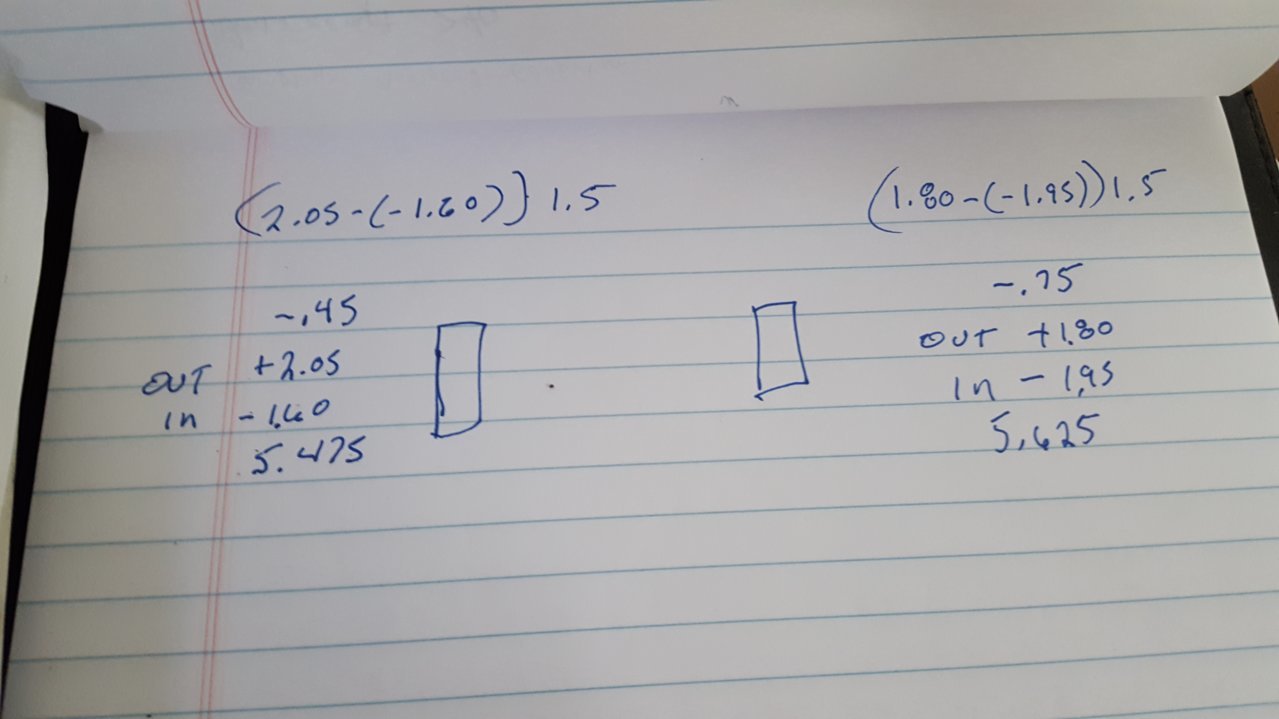 (2.05-(-1.60)} 1.5
-.45
OUT +2.05
in -1.60
5.475
(1.80-(-1.95))1.5
-.75
OUT +1.80
in -1.95
5.625